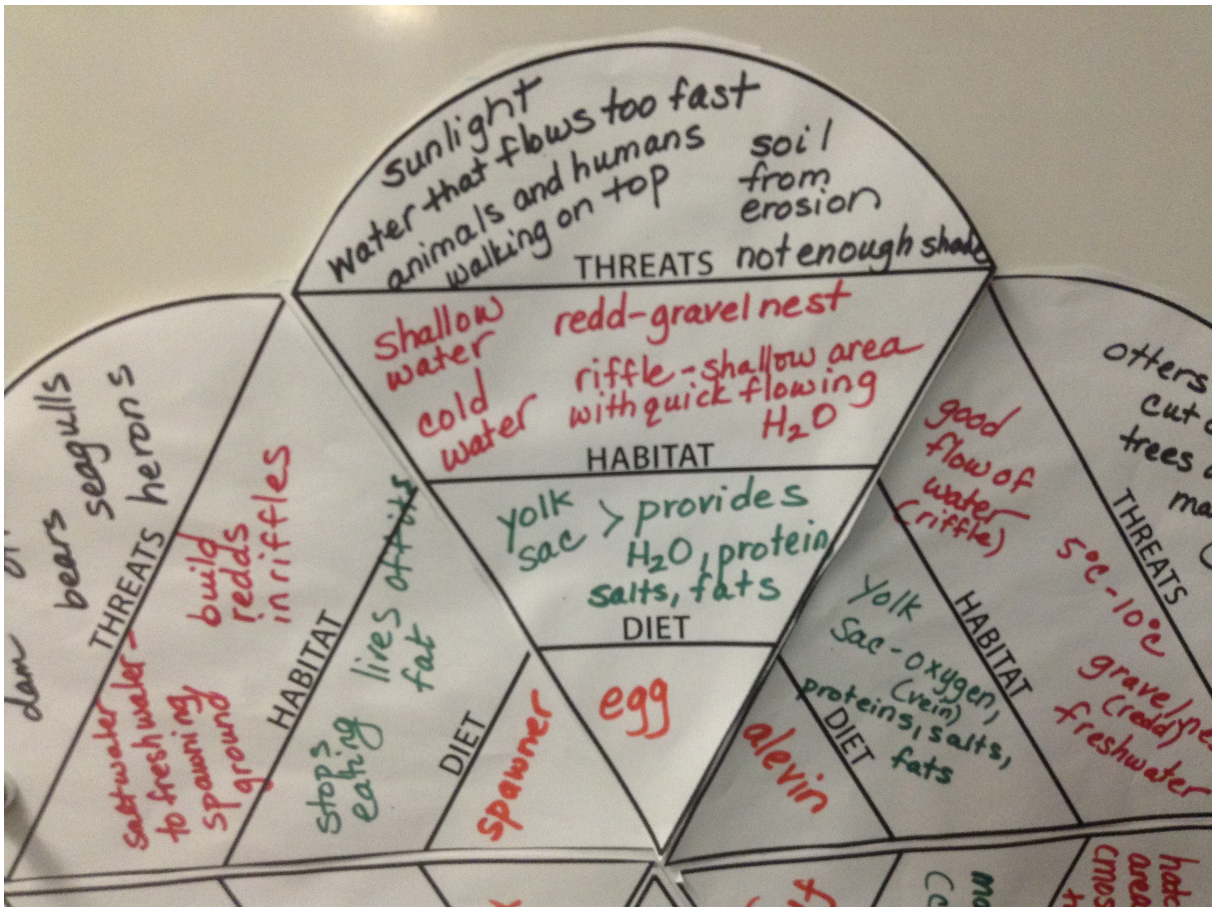 sunlight
water that flows too fast
animals and humans
walking on top
soil
from
erosion
not enough shade
THREATS
shallow
water
cold
water
redd-gravel nest
riffle - shallow area
with quick flowing
H₂O
HABITAT
yolk
sac > provides
H₂O, protein
salts, fats
DIET
egg
dam
bears
seagulls
herons
THREATS
saltwater -
to freshwater
spawning
ground
build
redds
in riffles
HABITAT
stops
eating
lives off its
fat
DIET
spawner
otters
cut
trees
THREATS
good
flow of
water
(riffle)
5°C - 10°C
gravel
(redd)
freshwater
HABITAT
yolk
sac - oxygen,
(vein)
proteins, salts,
fats
DIET
alevin